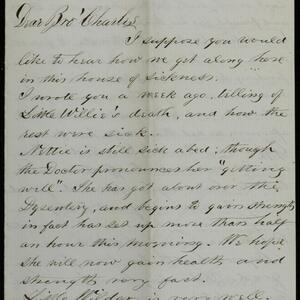 Dear Bro' Charlie
I suppose you would
like to hear how we get along here
in this house of sickness.
I wrote you a week ago, telling of
Little Willie's death, and how the
rest were sick.
Nettie is still sick abed, though
the Doctor pronounces her "getting
well". She has got about over the
Dysentery, and begins to gain strength
in fact has set up more than half
an hour this morning. We hope
she will now gain health and
strength very fast.
is very well